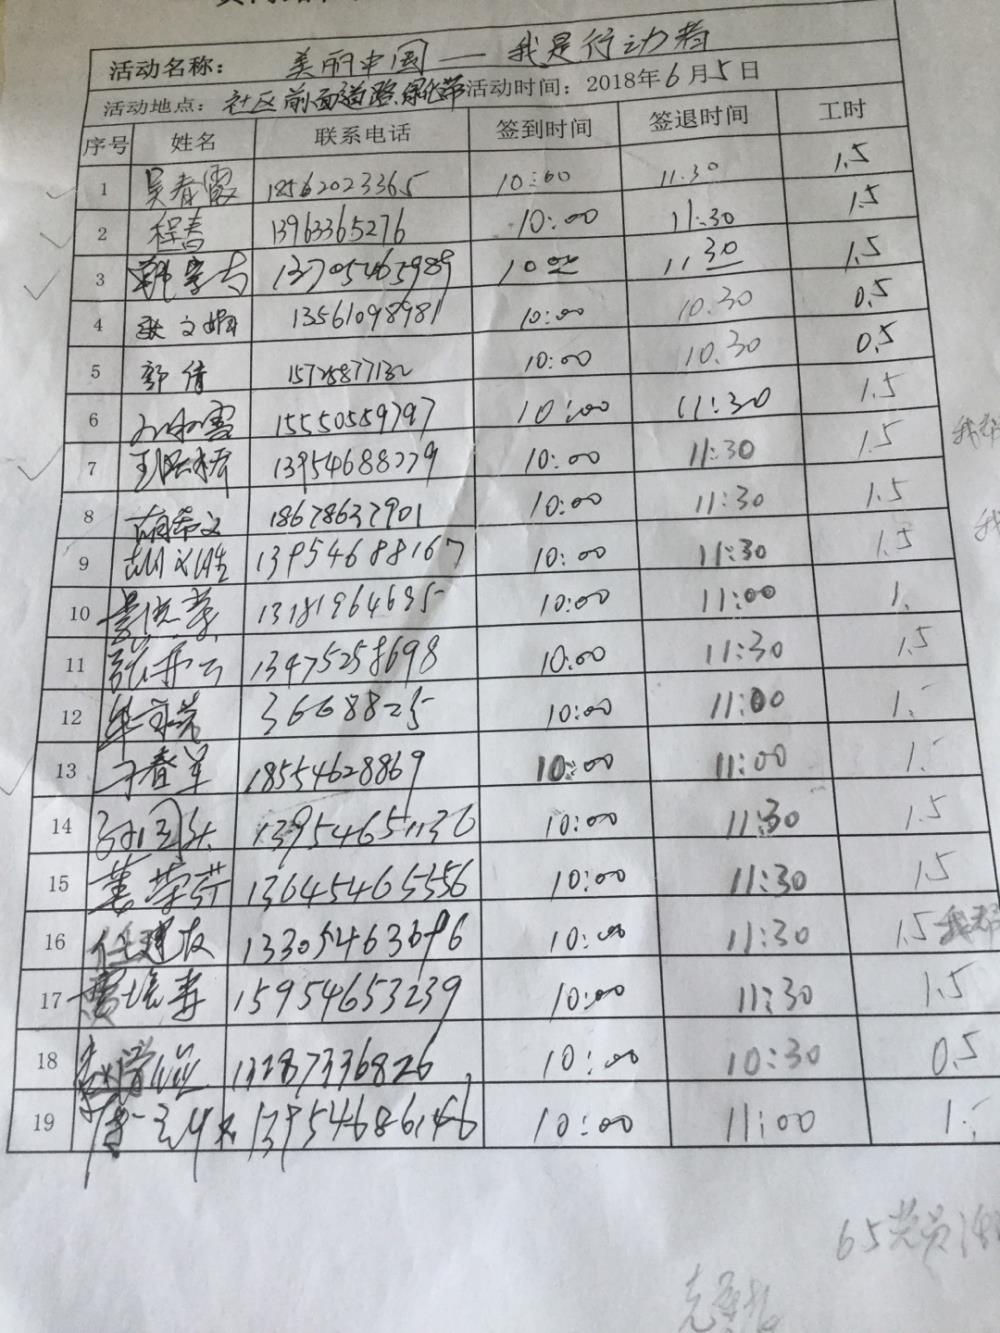 活动名称： 美丽中国——我是行动者
活动地点：社区前面道路、绿化带 活动时间：2018年6月5日
序号 姓名 联系电话 签到时间 签退时间 工时
1 吴春霞 18562023365 10:00 11:30 1.5
2 程春 13963365276 10:00 11:30 1.5
3 13705465989 10:00 11:30 1.5
4 13561098981 10:00 10.30 0.5
5 郭倩 10:00 10.30 0.5
6 15550559797 10:00 11:30 1.5
7 13954688779 10:00 11:30 1.5
8 18678637901 10:00 11:30 1.5
9 13954688167 10:00 11:30 1.5
10 13181964695 10:00 11:00 1.
11 13475258698 10:00 11:30 1.5
12 3668825 10:00 11:00 1.
13 于春军 18554628869 10:00 11:00 1.
14 13954651136 10:00 11:30 1.5
15 13645465556 10:00 11:30 1.5
16 任建友 13305463696 10:00 11:30 1.5
17 15954653239 10:00 11:30 1.5
18 13287336826 10:00 10:30 0.5
19 13954686146 10:00 11:00 1.
65党员